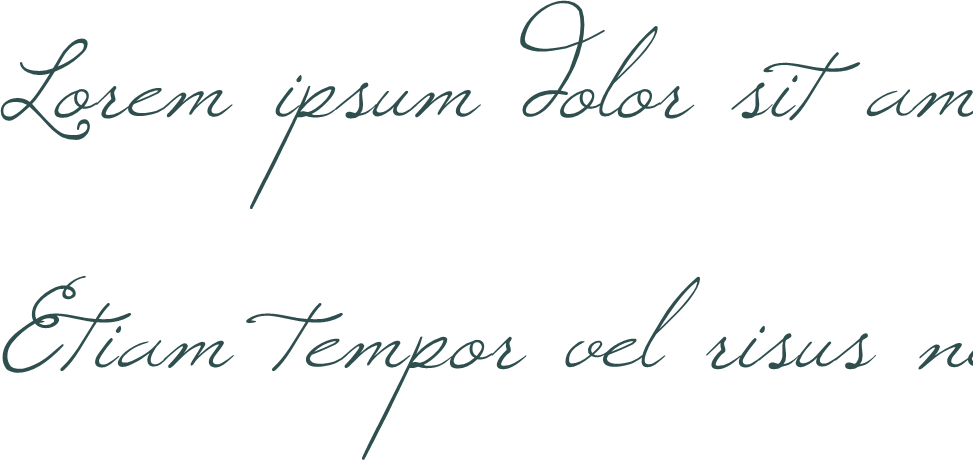 Lorem ipsum dolor sit am
Etiam tempor vel risus